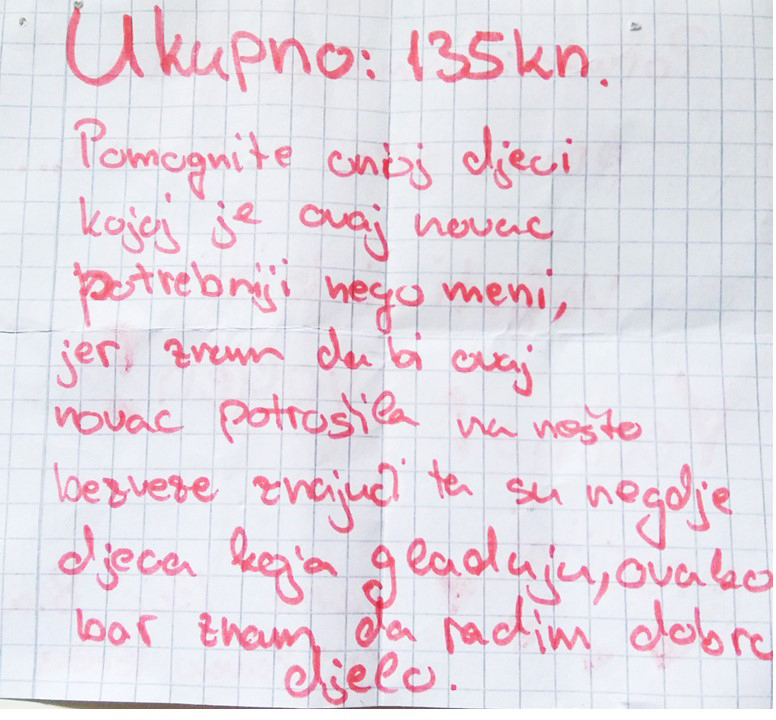 Ukupno: 135kn.
Pomognite onoj djeci
kojoj je ovaj novac
potrebniji nego meni,
jer znam da bi ovaj
novac potrosila na nešto
bezveze znajući ta su negdje
djeca koja gladuju, ovako
bar znam da radim dobro
djelo.